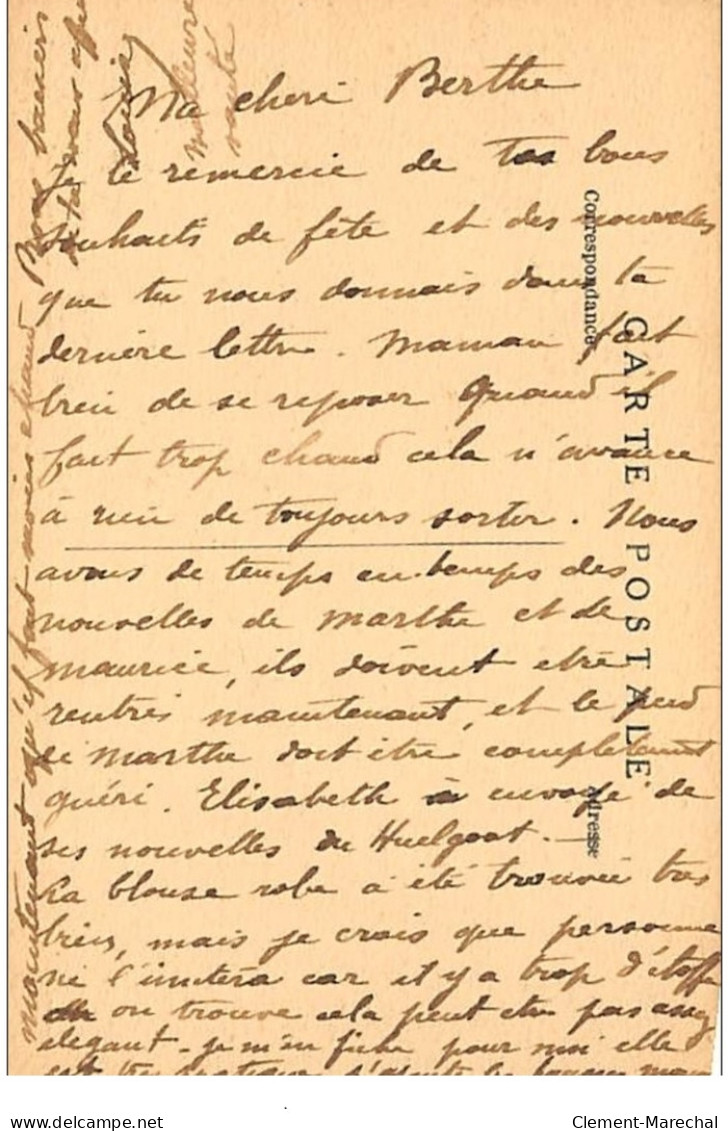 Ma cheri Berthe
Je te remercie de tes bons
souhaits de fête et des nouvelles
que tu nous donnais dans ta
dernière lettre. Maman fait
bien de se reposer quand il
fait trop chaud cela n'avance
à rien de toujours sortir. Nous
avons de temps en temps des
nouvelles de marthe et de
maurice, ils doivent etre
rentrés maintenant, et le pied
de marthe doit être complètement
guéri. Elisabeth a envoyé de
ses nouvelles du Huelgoat.
La blouse robe a été trouvée très
bien, mais je crois que personne
ne l'imitera car il y a trop d'étoffe
on trouve cela peut etre pas assez
elegant. je m'en fiche pour moi elle
est très pratique
maintenant qu'il fait moins chaud Bons baisers
Louise
meilleure
santé
CARTE POSTALE
Correspondance
Adresse
Clement-Marechal